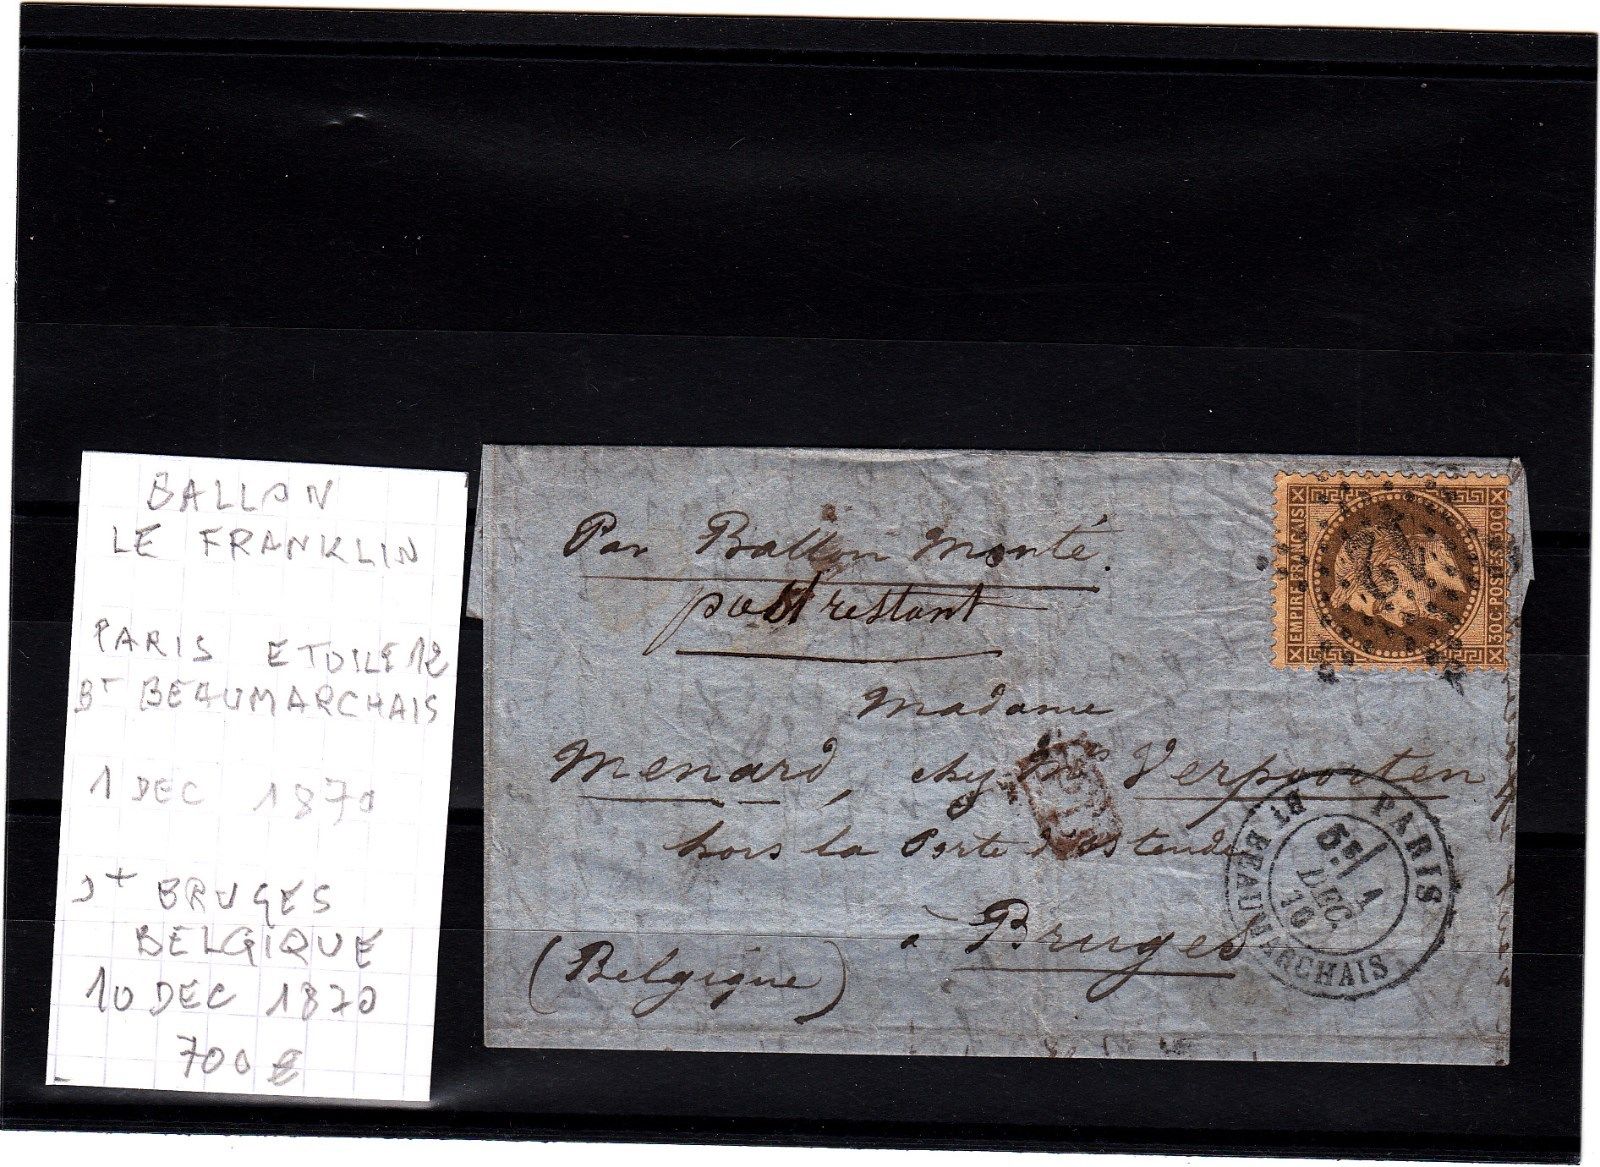 BALLON
LE FRANKLIN
PARIS ETOILE 12
Bt BEAUMARCHAIS
1 DEC 1870
BRUGES
BELGIQUE
10 DEC 1870
700 €
Par Ballon Monté.
post restant
Madame
Menard, chez Verpoorten
hors la Porte d'ostende
à Bruges
(Belgique)
EMPIRE FRANÇAIS
30C POSTES 30C
12
PARIS
Bt BEAUMARCHAIS
5E 1
DEC.
70